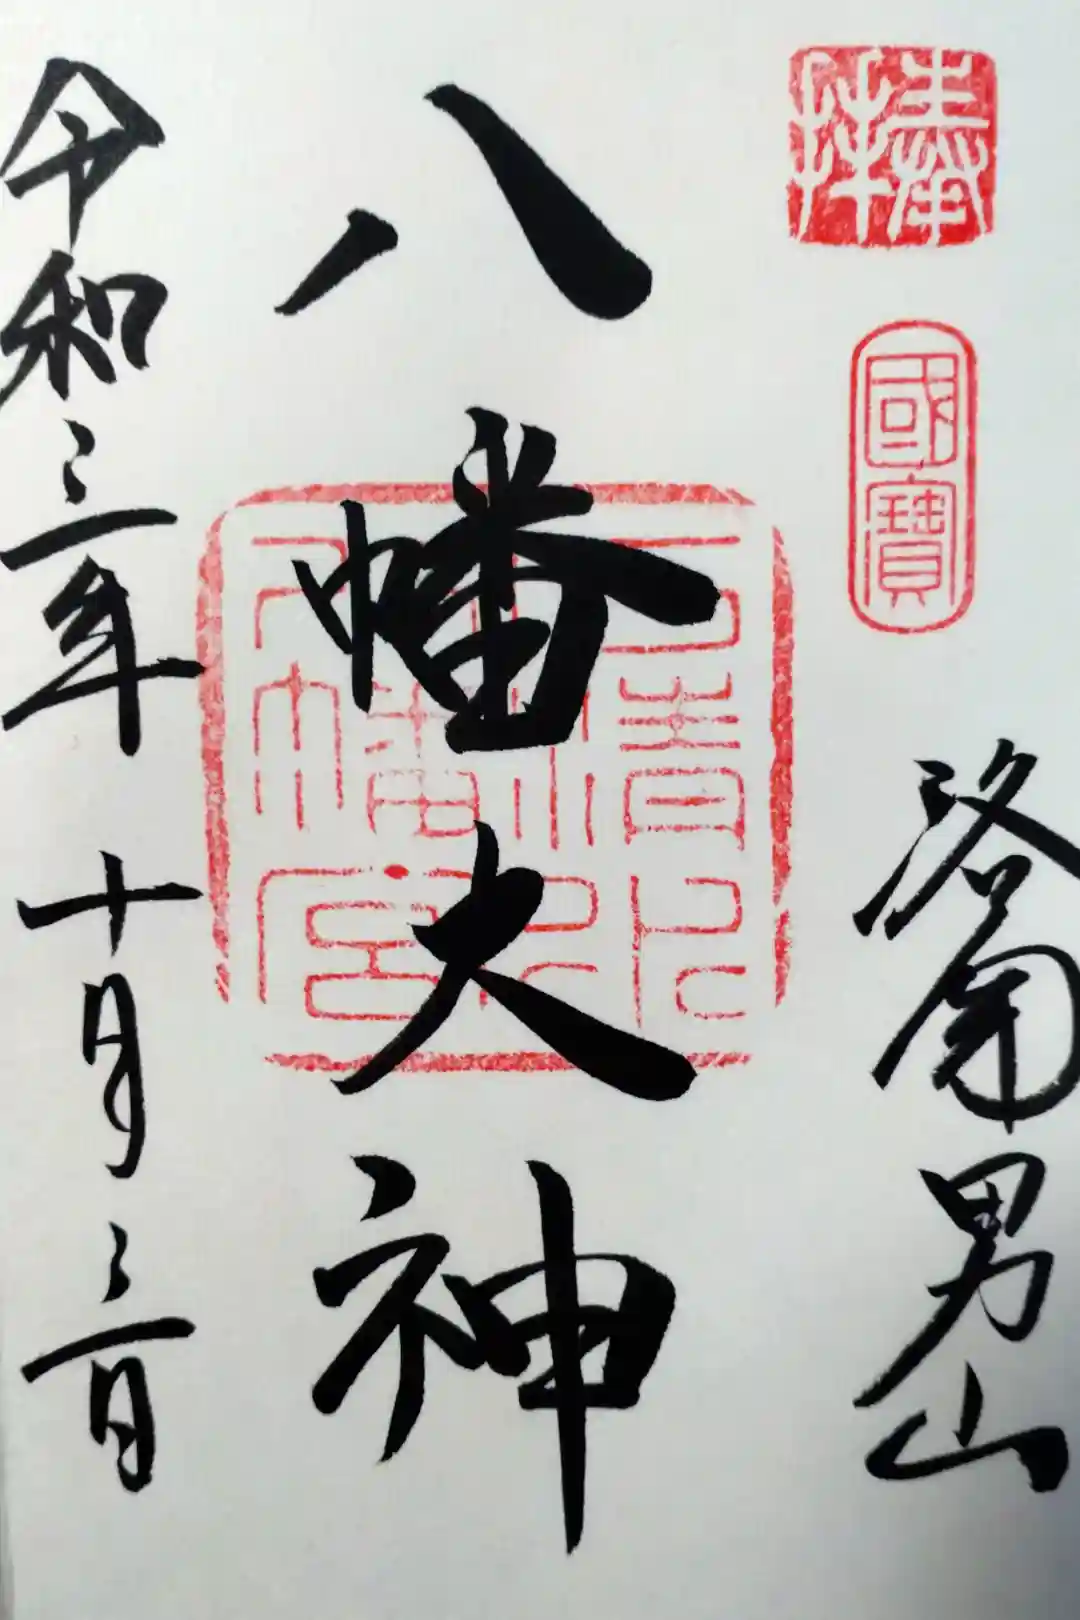 奉拝
國寶
洛南男山
八幡大神
石清水八幡宮
令和三年 十月三日